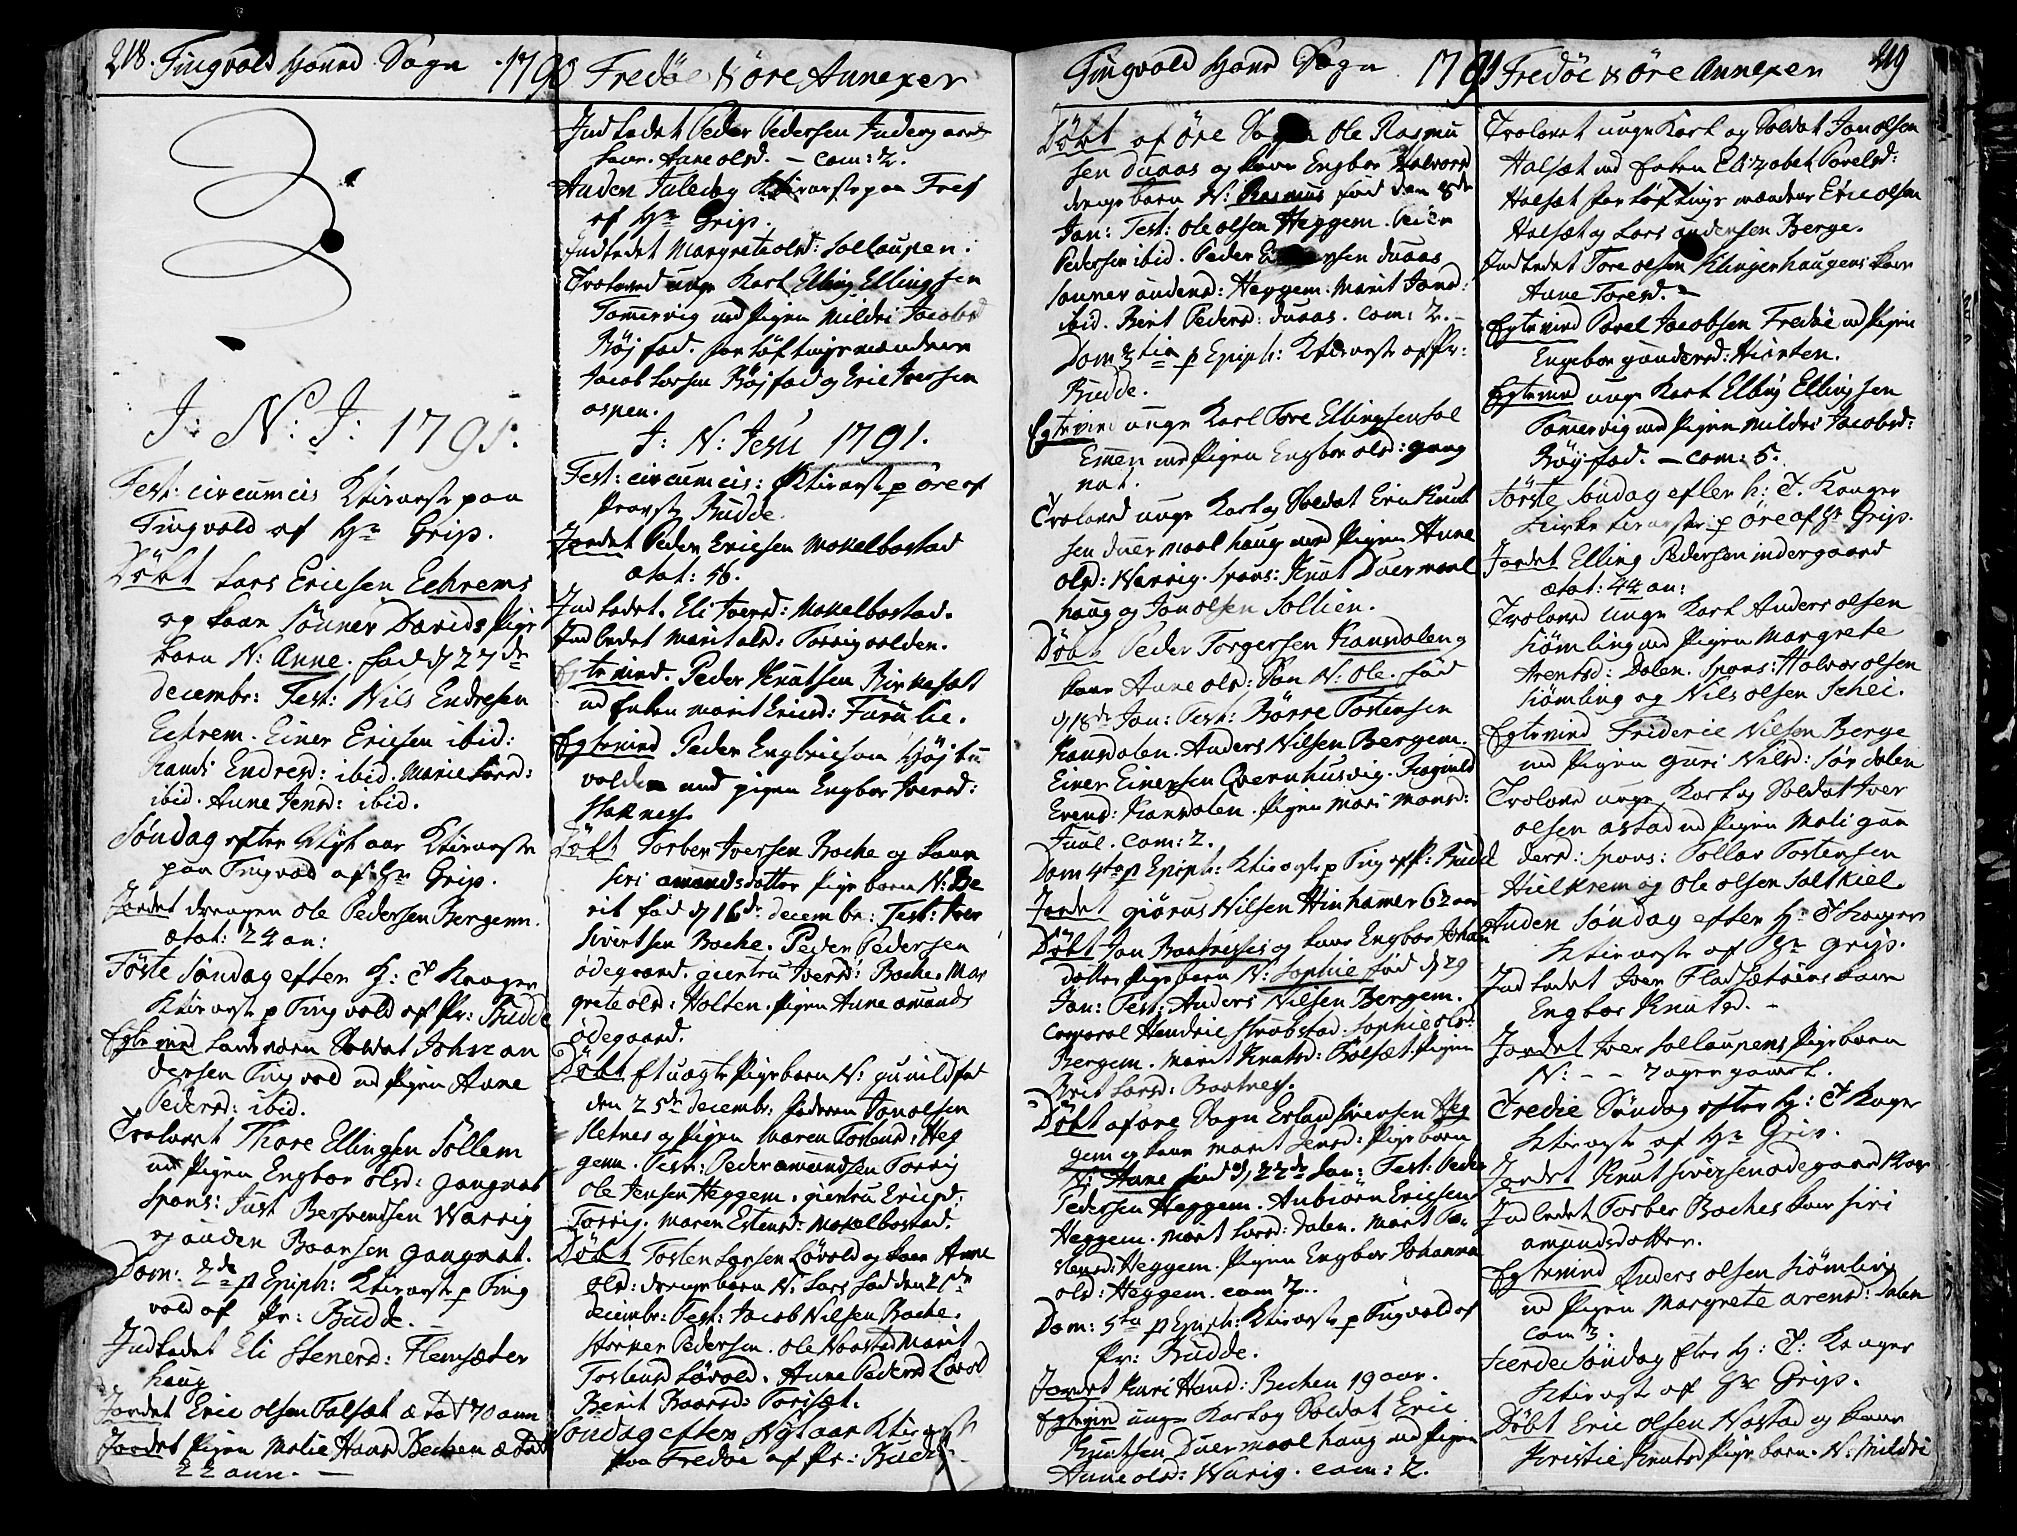 218. Tingvold Hoved Sogn 1790 Fredöe & öre Annexer
J: N: J: 1791.
Fest: circumcis Ktieneste paa
Tingvold af Hr Grip.
Döbt Lars Ericsen Echrems
og kone Sönnev Davids Pige
barn N: Anne. föd d 27de
decembr: Test: Nils Endresen
Echrem. Einer Ericsen ibid:
Randi Endresd: ibid. Marie Larsd:
ibid. Anne Jensd: ibid.
Söndag efter Nyt aar Ktieneste
paa Tingvold af Hr Grip.
Jordet drengen Ole Pedersen Bergem.
ætat: 24 an:
Förste Söndag efter H: 3 Konger
Ktieneste p Tingvold af Pr: Budde
Egtevied Landværn Soldat John an
dersen Tingvold med Pigen Anne
Pedersd: ibid.
Trolovet Thore Ellingsen Sollem
med Pigen Engbor olsd: gangnat
spons: Just Bersvendsen Warvig
og anden Baarsen gangnat.
Dom: 2da p Epiph: Ktieneste p Ting
vold af Pr: Budde.
Indledet Eli Stenersd: Flemsæter
haug
Jordet Eric olsen Falsæt ætat 70 ann
Jordet Pigen Malie Hansd Bechen ætat
22 ann.
Indledet Peder Pedersen Indergaards
kone. Anne olsd. – com: 2.
Anden Juledag Ktieneste paa Fred
af Hr Grip.
Indledet Margrete olsd: Sollaupen:
Trolovet unge Karl Elling Ellingsen
Tömmervig med Pigen Mildri Jacobsd
Röjsad. forlöftningsmændene
Jacob Larsen Röjsad og Eric Iversen
aspen.
J: N: Jesu 1791.
Fest: circumcis: Ktieneste p öre af
Provst Budde
Jordet Peder Ericsen Makelbostad
ætat: 56.
Indledet. Eli Iversd: Makelbostad.
Indledet Marit olsd: Torvigvolden.
Egtevied. Peder Knutsen Birkesæt
med Enken Marit Ericsd: Furulie.
Egtevied Peder Engbricsen Höjbu
volden med pigen Engbor Iversd:
Staknes.
Döbt Torber Iversen Boche og kone
Siri amundsdotter Pige barn N: Be
rit föd d 16de decembr: Test: Iver
Sivertsen Boche. Peder Pedersen
ödegaard. giertru Iversd: Boche. Mar
grete olsd: Holten. Pigen Anne amunds
ödegaard.
Döbt Et uægte Pigebarn N: gunild föd
den 25de decembr: faderen Jon olsen
Sletnes og Pigen Maren Tostensd: Heg
gem. Test: Peder amundsen Torvig
Ole Jensen Heggem. giertru Ericsd:
Torvig. Maren Estensd: Makelbostad.
Döbt Tosten Larsen Lövold og kone Anne
olsd: drengebarn N: Lars föd den 25de
decembr: Test: Jacob Nilsen Boche.
Storker Pedersen. Ole Naastad Marit
Tostensd Lövold. Anne Pedersd Lövold
Berit Baarsd: Torisæt.
Söndag efter Nyt aar Ktieneste
paa Fredöe af Pr: Budde
Tingvold Hoved Sogn 1791 Fredöe & öre Annexer 219
Döbt af öre Sogn Ole Rasmu
sen duaas og kone Engbor Halvorsd
drengebarn N: Rasmus föd den 8de
Jan: Test: Ole olsen Heggem. Peder
Pedersen ibid. Peder sen duaas
Sönnev andersd: Heggem. Marit Jonsd:
ibid. Berit Pedersd: duaas. com: 2.
Dom 3tia p Epiph: Ktieneste af Pr:
Budde.
Egtevied unge Karl Tore Ellingsen Sol
Emen med Pigen Engbor olsd: gang
nat.
Trolovet unge Karl og Soldat Eric Knut
sen duermaalhaug med Pigen Anne
olsd: Warvig. Spons: Knut Duermaal
haug og Jon olsen Sollien.
Döbt Peder Torgersen Kansdalen og
kone Anne olsd: Sön N: Ole. föd
d 18de Jan: Test: Börre Tostensen
Kansdalen. Anders Nilsen Bergem.
Einer Einersen Qvernhusvig. Ragnild
Erensd: Kansdalen. Pigen Mari Monsd:
Juul. com: 2.
Dom 4ta p Epiph: Ktieneste p Ting af Pr: Budde
Jordet giörus Nilsen Hinhamer 62 aar
Döbt Jon Baatneses og kone Engbor Johan
dotter Pigebarn N: Sophie föd d 29
Jan: Test: Anders Nilsen Bergem.
Corporal Hendric Strobstad. Sophie olsd:
Bergem. Marit Knutsd: Bölsæt. Pigen
Brit Larsd: Baatnes.
Döbt af öre Sogn Erland Svensen Heg
gem og kone Marit Jensd: Pigebarn
N: Anne föd d 22de Jan: Test: Peder
Pedersen Heggem. Anbiörn Ericsen
Heggem. Marit Larsd: Dalen. Marit To
stensd: Heggem. Pigen Engbor Johanna
olsd: Heggem. com 7.
Dom: 5ta p Epiph: Ktieneste p Tingvold af
Pr: Budde.
Jordet Kari Hansd: Bechen 19 aar.
Egtevied unge Karl og Soldat Eric
Knutsen Duermaalhaug med Pigen
Anne olsd: Warvig. com: 2.
Trolovet unge Karl og Soldat Jon olsen
Halsæt med Enken Elizabet Povelsd:
Halsæt forlöftnings mændene Eric olsen
Halsæt og Lars andersen Berge.
Indledet Tore olsen Klingenhaugens kone
Anne Toresd. –
Egtevied Povel Jacobsen Fredöe med Pigen
Engebor gundersd: Hiorten.
Egtevied unge Karl Elling Ellingsen
Tömmervig med Pigen Mildri Jacobsd:
Röysad. – com: 5.
Förste Söndag efter h: 3. Konger
Kirketieneste p öre af Hr Grip.
Jordet Elling Pedersen indergaard
ætat: 44 an:
Trolovet unge Karl Anders olsen
Kiömling med Pigen Margrete
Arentsd: Dalen. Spons: Halvor olsen
Kiömling og Nils olsen Schei.
Egtevied Frideric Nilsen Berge
med Pigen guri Nilsd: Sördalen
Trolovet unge Karl og Soldat Iver
olsen astad med Pigen Mali gun
dersd: Spons: Tollov Tostensen
Hielkrem og Ole olsen Saltkiel.
Anden Söndag efter H: 3 Konger
Ktieneste af Hr Grip.
Indledet Iver Fladsætöiens kone
Engbor Knutsd. –
Jordet Iver Sollaupens Pigebarn
N: – – 7 uger gamel.
Tredie Söndag efter H: 3 Konger
Ktieneste af Hr Grip.
Jordet Knut Siversen ödegaard
Indledet Torber Boches kone Siri
amundsdotter.
Egtevied Anders olsen Kiömling
med Pigen Margrete arensd: Dalen
com 3.
Fierde Söndag efter H: 3: Konger
Ktieneste af Hr Grip.
Döbt Eric olsen Nastad og kone
Kristie Knutsd Pigebarn. N: Mildri